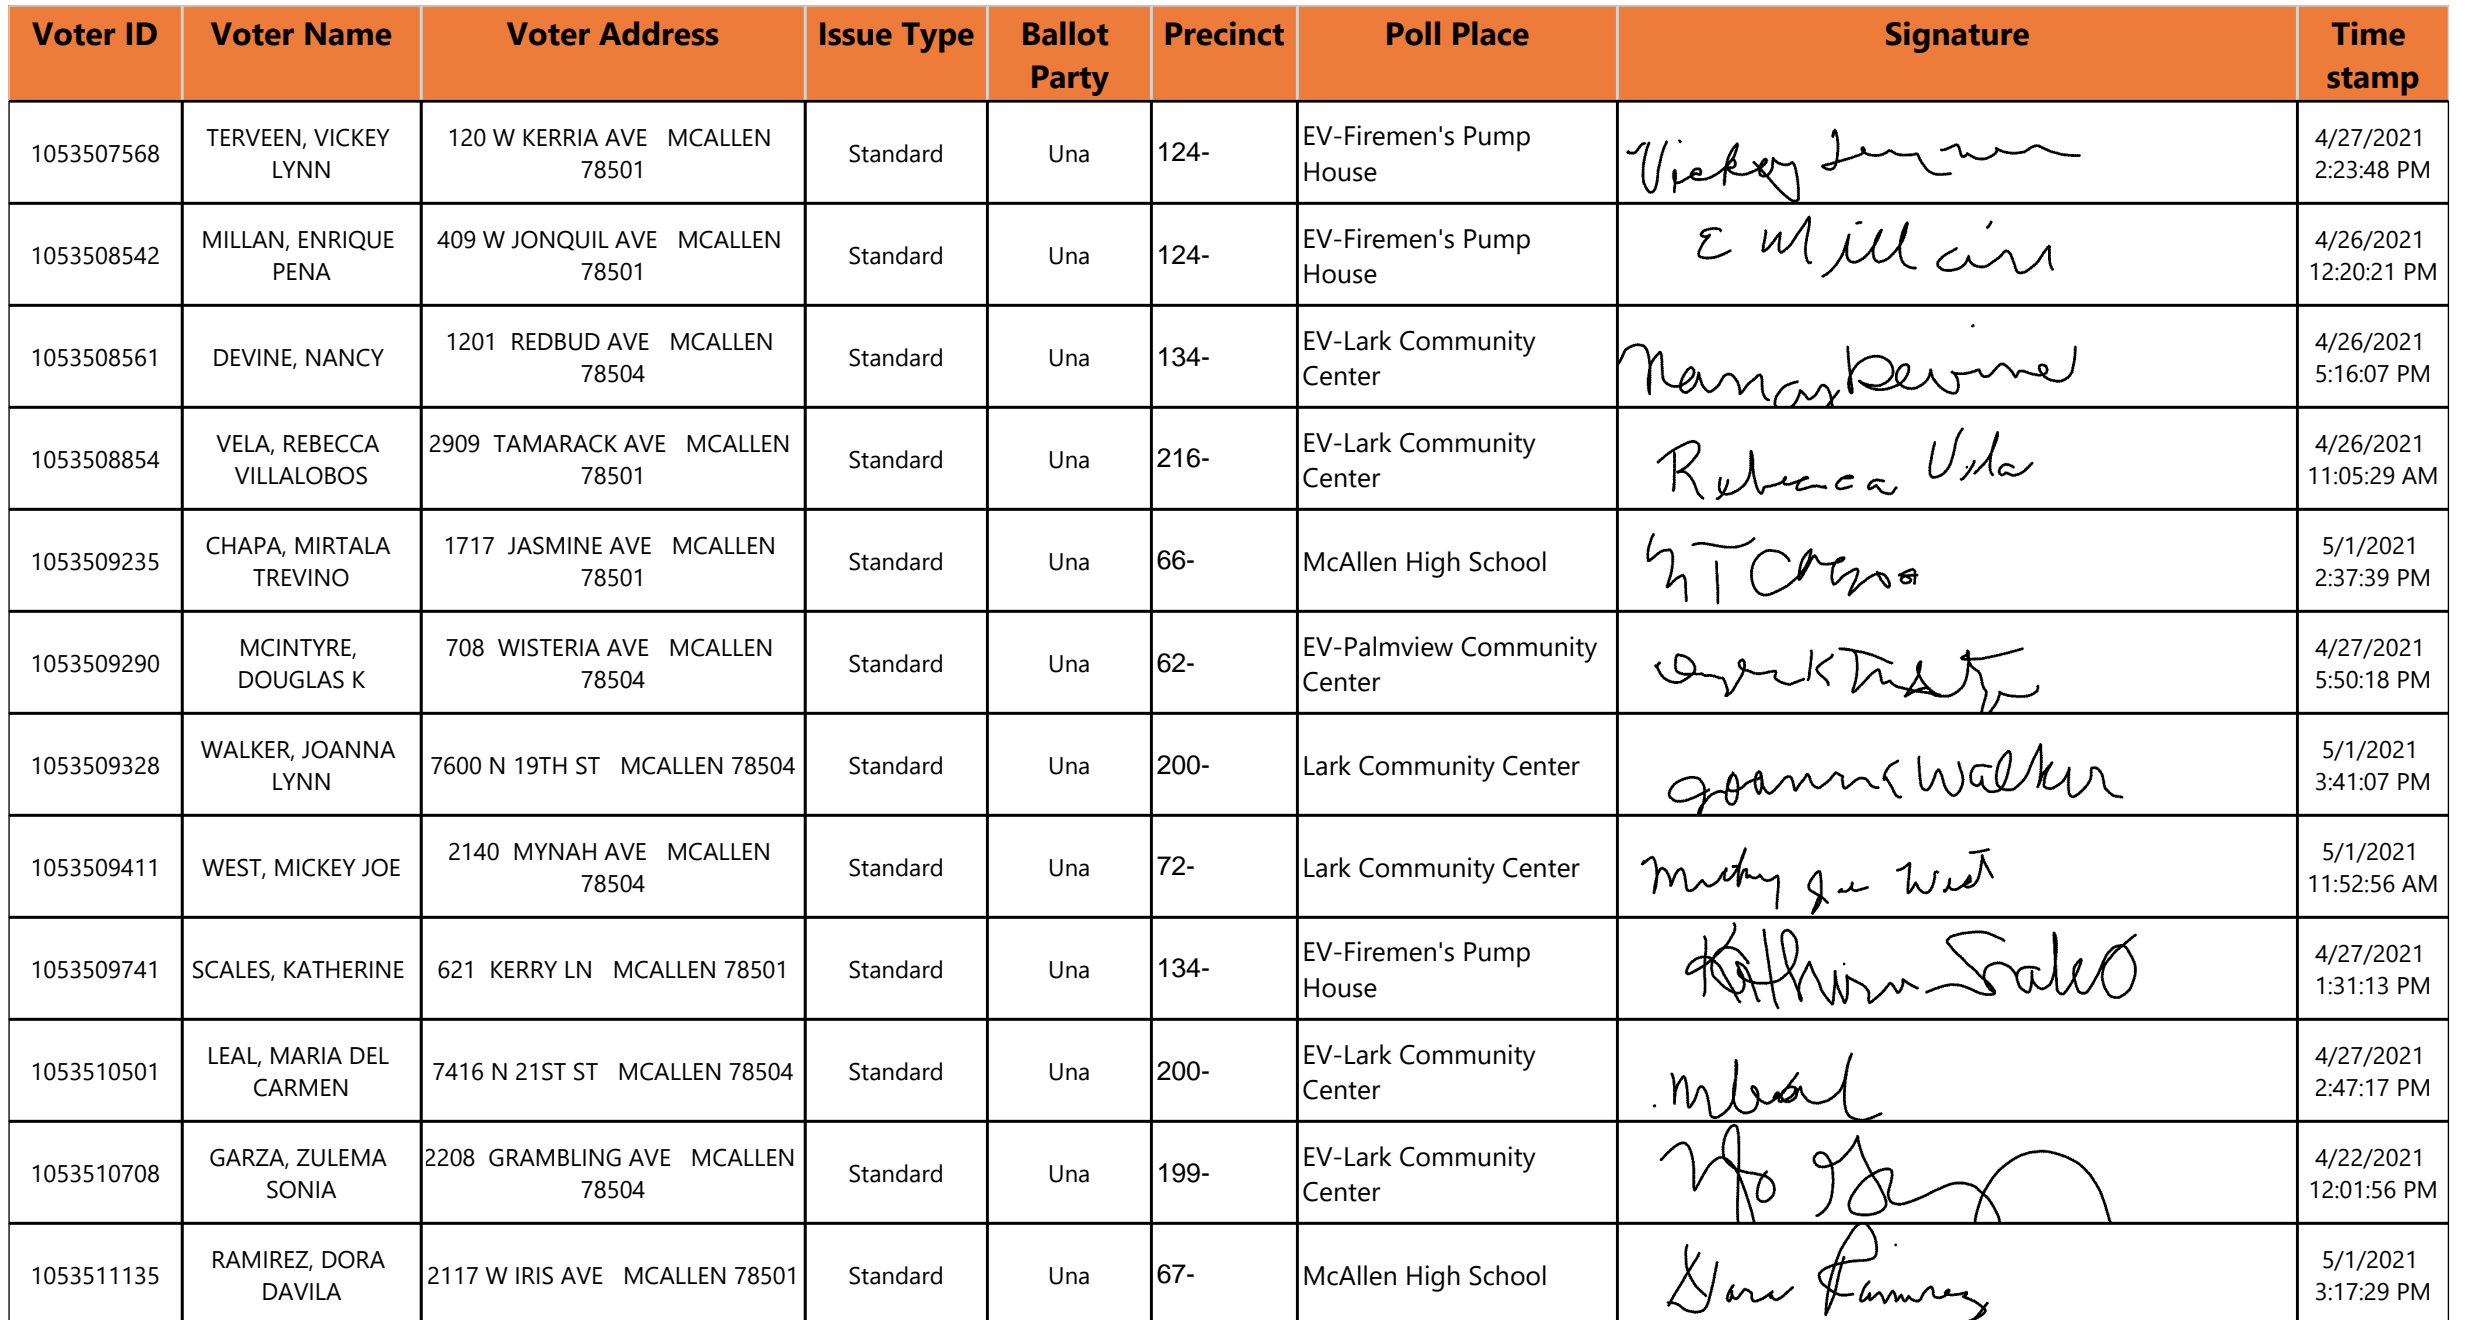 Voter ID Voter Name Voter Address Issue Type Ballot Party Precinct Poll Place Signature Time stamp
1053507568 TERVEEN, VICKEY LYNN 120 W KERRIA AVE MCALLEN 78501 Standard Una 124- EV-Firemen's Pump House Vickey 4/27/2021 2:23:48 PM
1053508542 MILLAN, ENRIQUE PENA 409 W JONQUIL AVE MCALLEN 78501 Standard Una 124- EV-Firemen's Pump House E Millan 4/26/2021 12:20:21 PM
1053508561 DEVINE, NANCY 1201 REDBUD AVE MCALLEN 78504 Standard Una 134- EV-Lark Community Center Nancy Devine 4/26/2021 5:16:07 PM
1053508854 VELA, REBECCA VILLALOBOS 2909 TAMARACK AVE MCALLEN 78501 Standard Una 216- EV-Lark Community Center Rebecca Vela 4/26/2021 11:05:29 AM
1053509235 CHAPA, MIRTALA TREVINO 1717 JASMINE AVE MCALLEN 78501 Standard Una 66- McAllen High School 5/1/2021 2:37:39 PM
1053509290 MCINTYRE, DOUGLAS K 708 WISTERIA AVE MCALLEN 78504 Standard Una 62- EV-Palmview Community Center 4/27/2021 5:50:18 PM
1053509328 WALKER, JOANNA LYNN 7600 N 19TH ST MCALLEN 78504 Standard Una 200- Lark Community Center Joanna Walker 5/1/2021 3:41:07 PM
1053509411 WEST, MICKEY JOE 2140 MYNAH AVE MCALLEN 78504 Standard Una 72- Lark Community Center Mickey Joe West 5/1/2021 11:52:56 AM
1053509741 SCALES, KATHERINE 621 KERRY LN MCALLEN 78501 Standard Una 134- EV-Firemen's Pump House Katherine Scales 4/27/2021 1:31:13 PM
1053510501 LEAL, MARIA DEL CARMEN 7416 N 21ST ST MCALLEN 78504 Standard Una 200- EV-Lark Community Center M Leal 4/27/2021 2:47:17 PM
1053510708 GARZA, ZULEMA SONIA 2208 GRAMBLING AVE MCALLEN 78504 Standard Una 199- EV-Lark Community Center 4/22/2021 12:01:56 PM
1053511135 RAMIREZ, DORA DAVILA 2117 W IRIS AVE MCALLEN 78501 Standard Una 67- McAllen High School Dora Ramirez 5/1/2021 3:17:29 PM